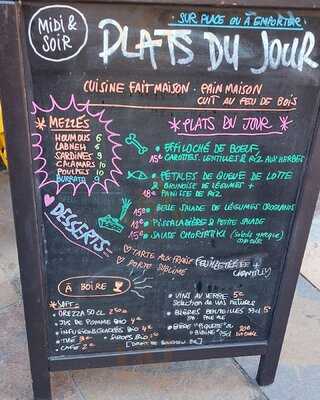 MIDI & SOIR
SUR PLACE OU À EMPORTER
PLATS DU JOUR
CUISINE FAIT MAISON - PAIN MAISON
CUIT AU FEU DE BOIS
* MEZZES
HOUMOUS 6
LABNEH 6
SARDINES 9
CALAMARS 10
POULPES 10
BURRATA 9
* PLATS DU JOUR *
EFFILOCHÉ DE BOEUF,
15€ CAROTTES, LENTILLES & RIZ AUX HERBES
PÉTALES DE QUEUE DE LOTTE
& BRUNOISE DE LÉGUMES +
18€ PANISSE DE RIZ
15€ BELLE SALADE DE LÉGUMES CROQUANTS
13€ PISSALADIÈRE & PETITE SALADE
15€ SALADE CHORIATIKI (salade grecque)
DESSERTS
TARTE AUX FRAISES
PORTO SUBLIME
À BOIRE
* SOFT
OREZZA 50 CL
JUS DE POMME BIO 4€
INFUSIONS GLACÉES BIO 4€
THÉ 3€ SIROPS BIO
CAFÉ 2€
VINS AU VERRE 5€
Sélection de vins natures
BIÈRES BOUTEILLES 33cl 5€
PALE ALE
BIÈRE "PIQUETTE"